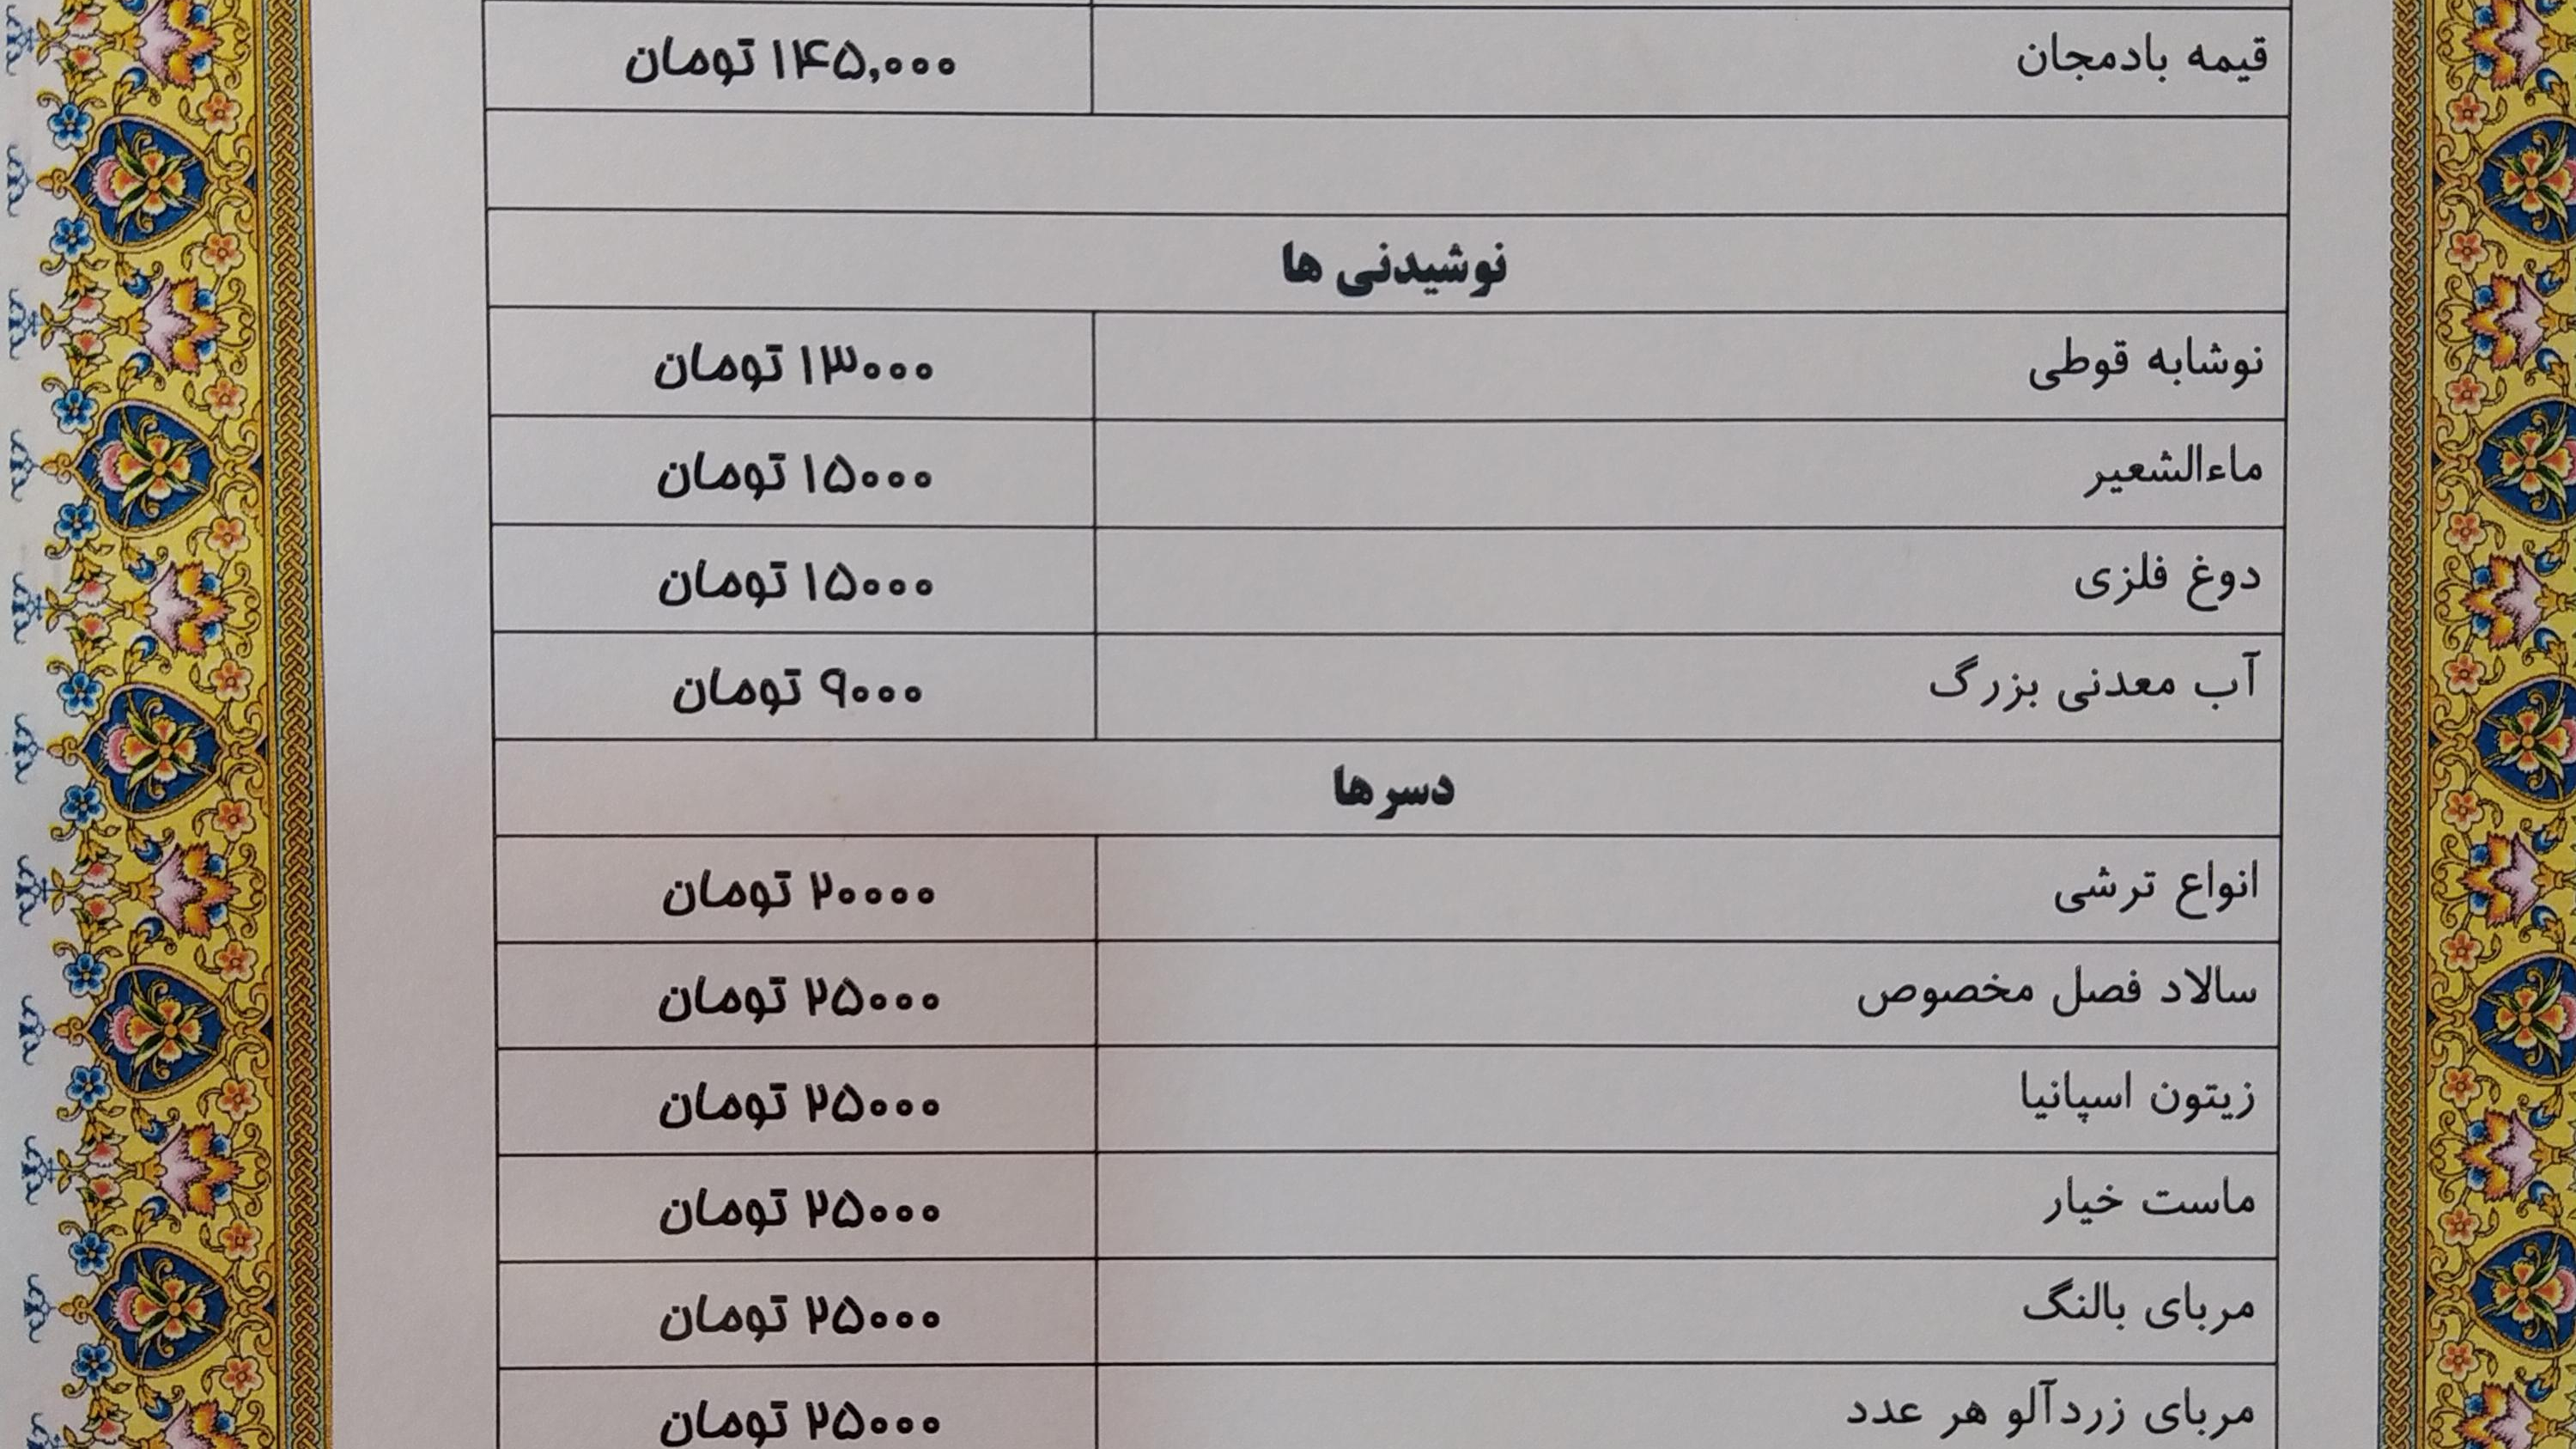 قیمه بادمجان ۱۴۵,۰۰۰ تومان
نوشیدنی ها
نوشابه قوطی ۱۳۰۰۰ تومان
ماءالشعیر ۱۵۰۰۰ تومان
دوغ فلزی ۱۵۰۰۰ تومان
آب معدنی بزرگ ۹۰۰۰ تومان
دسرها
انواع ترشی ۲۰۰۰۰ تومان
سالاد فصل مخصوص ۲۵۰۰۰ تومان
زیتون اسپانیا ۲۵۰۰۰ تومان
ماست خیار ۲۵۰۰۰ تومان
مربای بالنگ ۲۵۰۰۰ تومان
مربای زردآلو هر عدد ۲۵۰۰۰ تومان